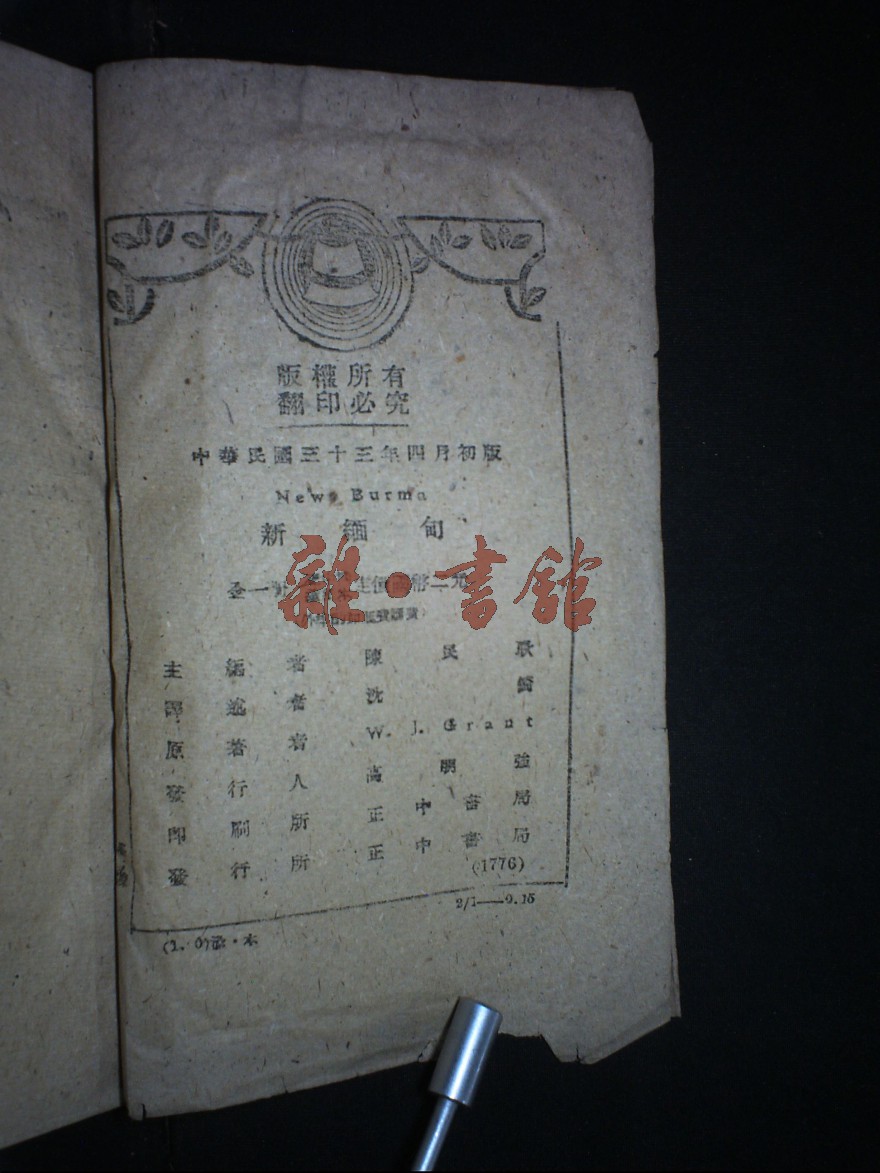 版權所有
翻印必究
中華民國三十三年四月初版
New Burma
新緬甸
全一冊
雜·書館
主編者 陳民耿
譯述者 沈錡
原著者 W. J. Grant
發行人 高明強
印刷所 正中書局
發行所 正中書局
(1776)
2/1——0.15